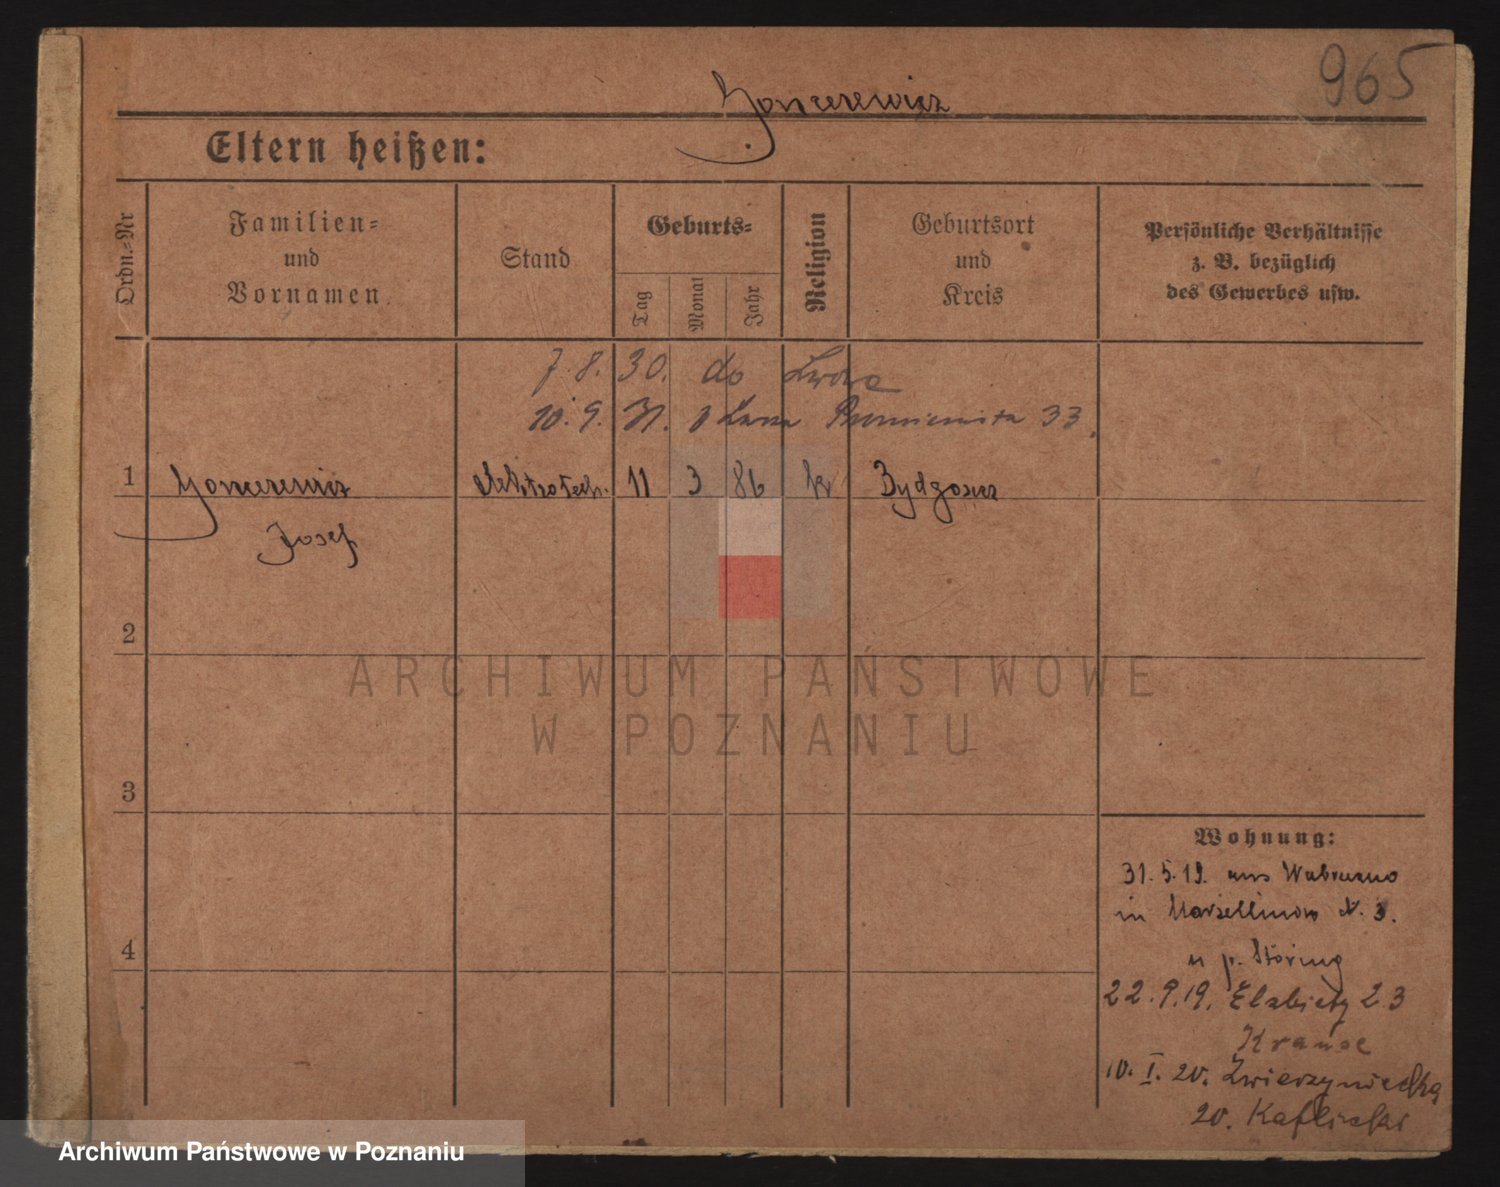 965
Eltern heißen:
Ordn.-Nr
Familien-
und
Vornamen
Stand
Geburts-
Tag
Monat
Jahr
Religion
Geburtsort
und
Kreis
Persönliche Verhältnisse
z. B. bezüglich
des Gewerbes usw.
7. 8. 30. do Lwowa
10. 9. 31. 33.
1 11 3 86 k Bydgoszcz
Josef
2
ARCHIWUM PAŃSTWOWE
W POZNANIU
3
Wohnung:
31. 5. 19. aus
in Marzellinow N. 3.
4
b. Störing
22. 9. 19. Elzbiety 23
Krause
10. I. 20. Zwierzyniecka
20.
Archiwum Państwowe w Poznaniu